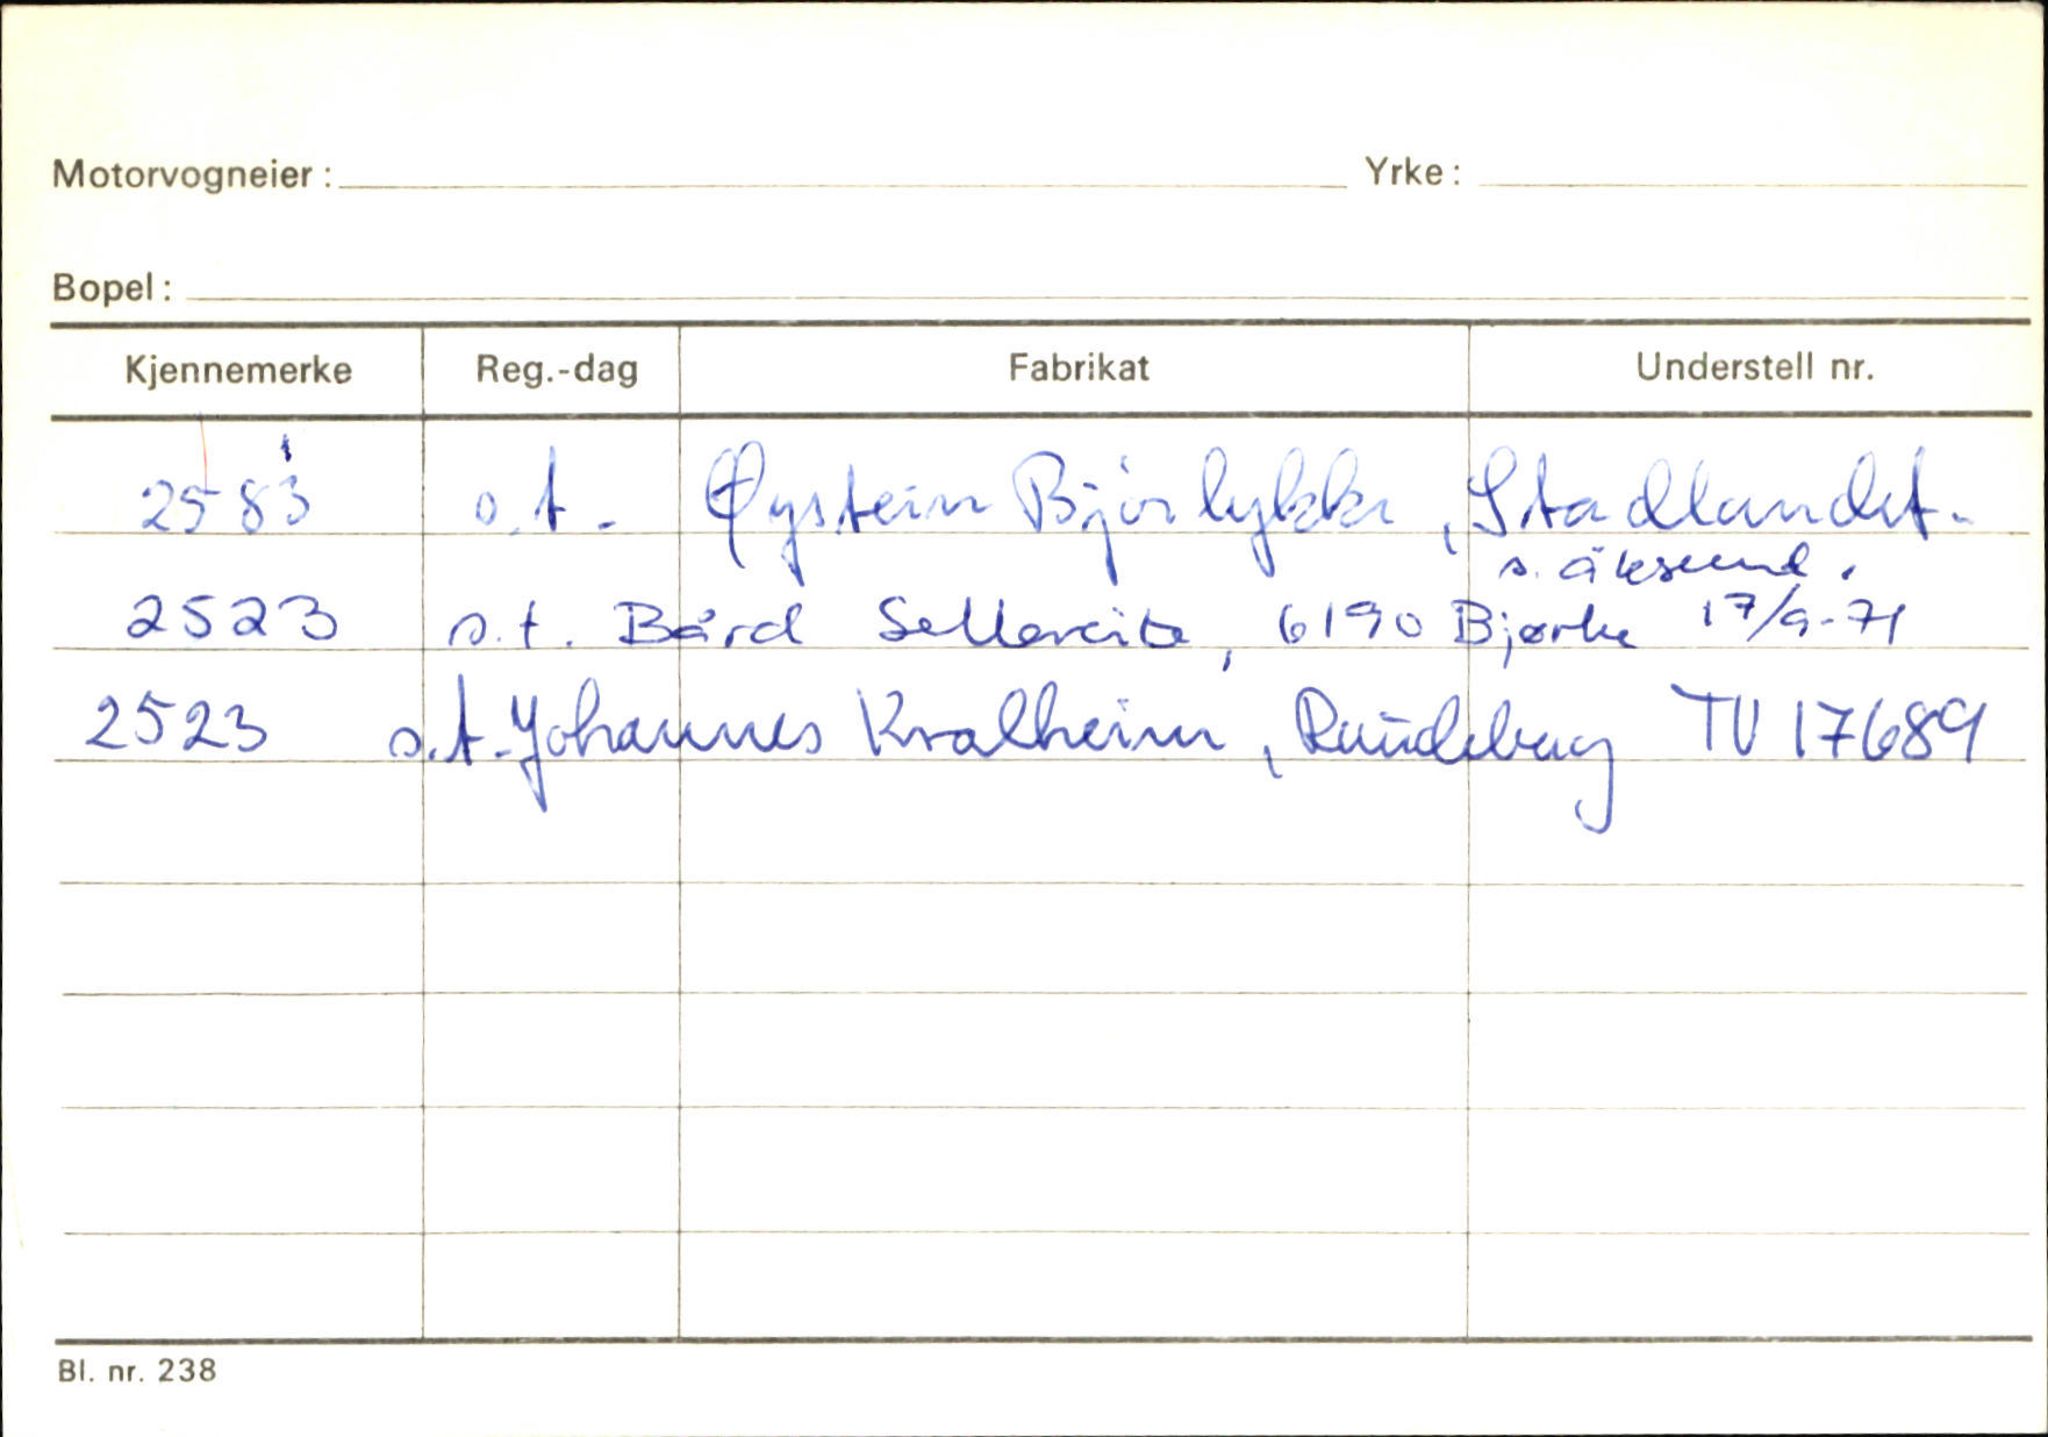 Motorvogneier: Yrke:
Bopel:
Kjennemerke Reg.-dag Fabrikat Understell nr.
2583 s.t. Øystein Bjørlykke, Stadlandet.
s. åksund.
2523 s.t. Bård Sellereite, 6190 Bjørke 17/9-71
2523 s.t. Johannes Kvalheim, Raudeberg TU 17689
Bl. nr. 238